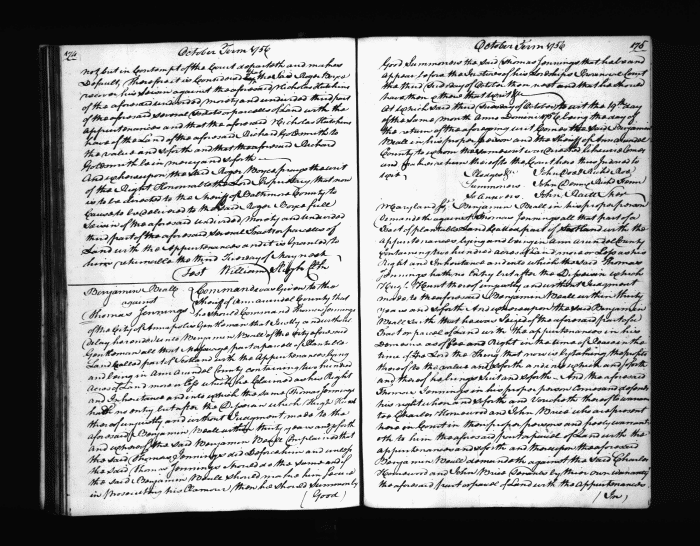 174
October Term 1756
not but in Contempt of the Court departeth and makes
Default, Therefore it is Considered that the said Roger Boyce
recover his Seisin against the aforesaid Nicholas Hutchins
of the aforesaid undivided Moiety and undivided third part
of the aforesaid several Tracts or parcels of Land with the
Appurtenances and that the aforesaid Nicholas Hutchins
have of the Land of the aforesaid Richard Goldsmith to
the value and so forth and that the aforesaid Richard
Goldsmith be in mercy and so forth
And whereupon the said Roger Boyce prays the writ
of the Right Honourable the Lord Proprietary that now
is to be directed to the Sheriff of Baltimore County to
Cause to be delivered to the said Roger Boyce full
Seisin of the aforesaid undivided Moiety and undivided
third part of the aforesaid several Tracts or parcels of
Land with the Appurtenances and it is Granted to
him returnable the third Tuesday of May next
Test William Clk
Benjamin Beall
against
Thomas Jennings
Command was Given to the
Sheriff of Ann Arundel County that
he should Command Thomas Jennings
of the City of Annapolis Gentleman that Justly and without
delay he render unto Benjamin Beall of the City aforesaid
Gentleman all that part of a Tract of
Land Called part of with the Appurtenances lying
and being in Ann Arundel County containing two hundred
Acres of Land more or less which he Claimed as his Right
and Inheritance and into which the same Thomas Jennings
hath no entry but after the Disseisin which Hugh Hunt
thereof unjustly and without Judgment made to the
aforesaid Benjamin Beall within thirty years and so forth
and whereof the said Benjamin Beall Complained that
the said Thomas Jennings did deforce him and unless
the said Thomas Jennings should do the same and if
the said Benjamin Beall should make him secure
in Prosecuting his Clamour then he should Summon by
(Good)
October Term 1756
175
Good Summoners the said Thomas Jennings that he be and
Appear before the Justices of his Lordships Provincial Court
the third Tuesday of October then next and that he should
have then & there that writ &c
At which said third Tuesday of October to wit the 19th Day
of the same Month Anno Domini 1756 being the day of
the return of the aforegoing writ Comes the said Benjamin
Beall in his proper person and the Sheriff of Ann Arundel
County to whom
on the return thereof to the Court here thus
Pledges &c
John Doe & Richd Roe
Summoners
John Denn Richd Fenn
Maryland ss Benjamin Beall in his proper person
demandeth against Thomas Jennings all that part of a
Tract of Land Called part of with the
appurtenances lying and being in Ann Arundel County
containing two hundred acres of Land more or less as his
Right and Inheritance and into which the said Thomas
Jennings hath no Entry but after the Disseisin which
Hugh Hunt thereof unjustly and without Judgment
made to the aforesaid Benjamin Beall within thirty
years and so forth And whereupon the said Benjamin
Beall saith that he was Seized of the aforesaid part of a
Tract or parcel of Land with the appurtenances in his
Demesne as of Fee and Right in the time of Peace in the
time of the Lord the King that now is by taking the profits
thereof to the value and so forth and into which and so forth
and thereof he brings Suit and so forth And the aforesaid
Thomas Jennings in his proper person Comes and defends
his right when and so forth and Voucheth thereof to warran
too Charles Hammond and John Brice who are present
here in Court in their proper persons and freely warrant
eth to him the aforesaid part or parcel of Land with the
appurtenances and so forth and thereupon the aforesaid
Benjamin Beall demandeth against the said Charles
Hammond and John Brice Tenants by their own warranty
the aforesaid part or parcel of Land with the Appurtenances